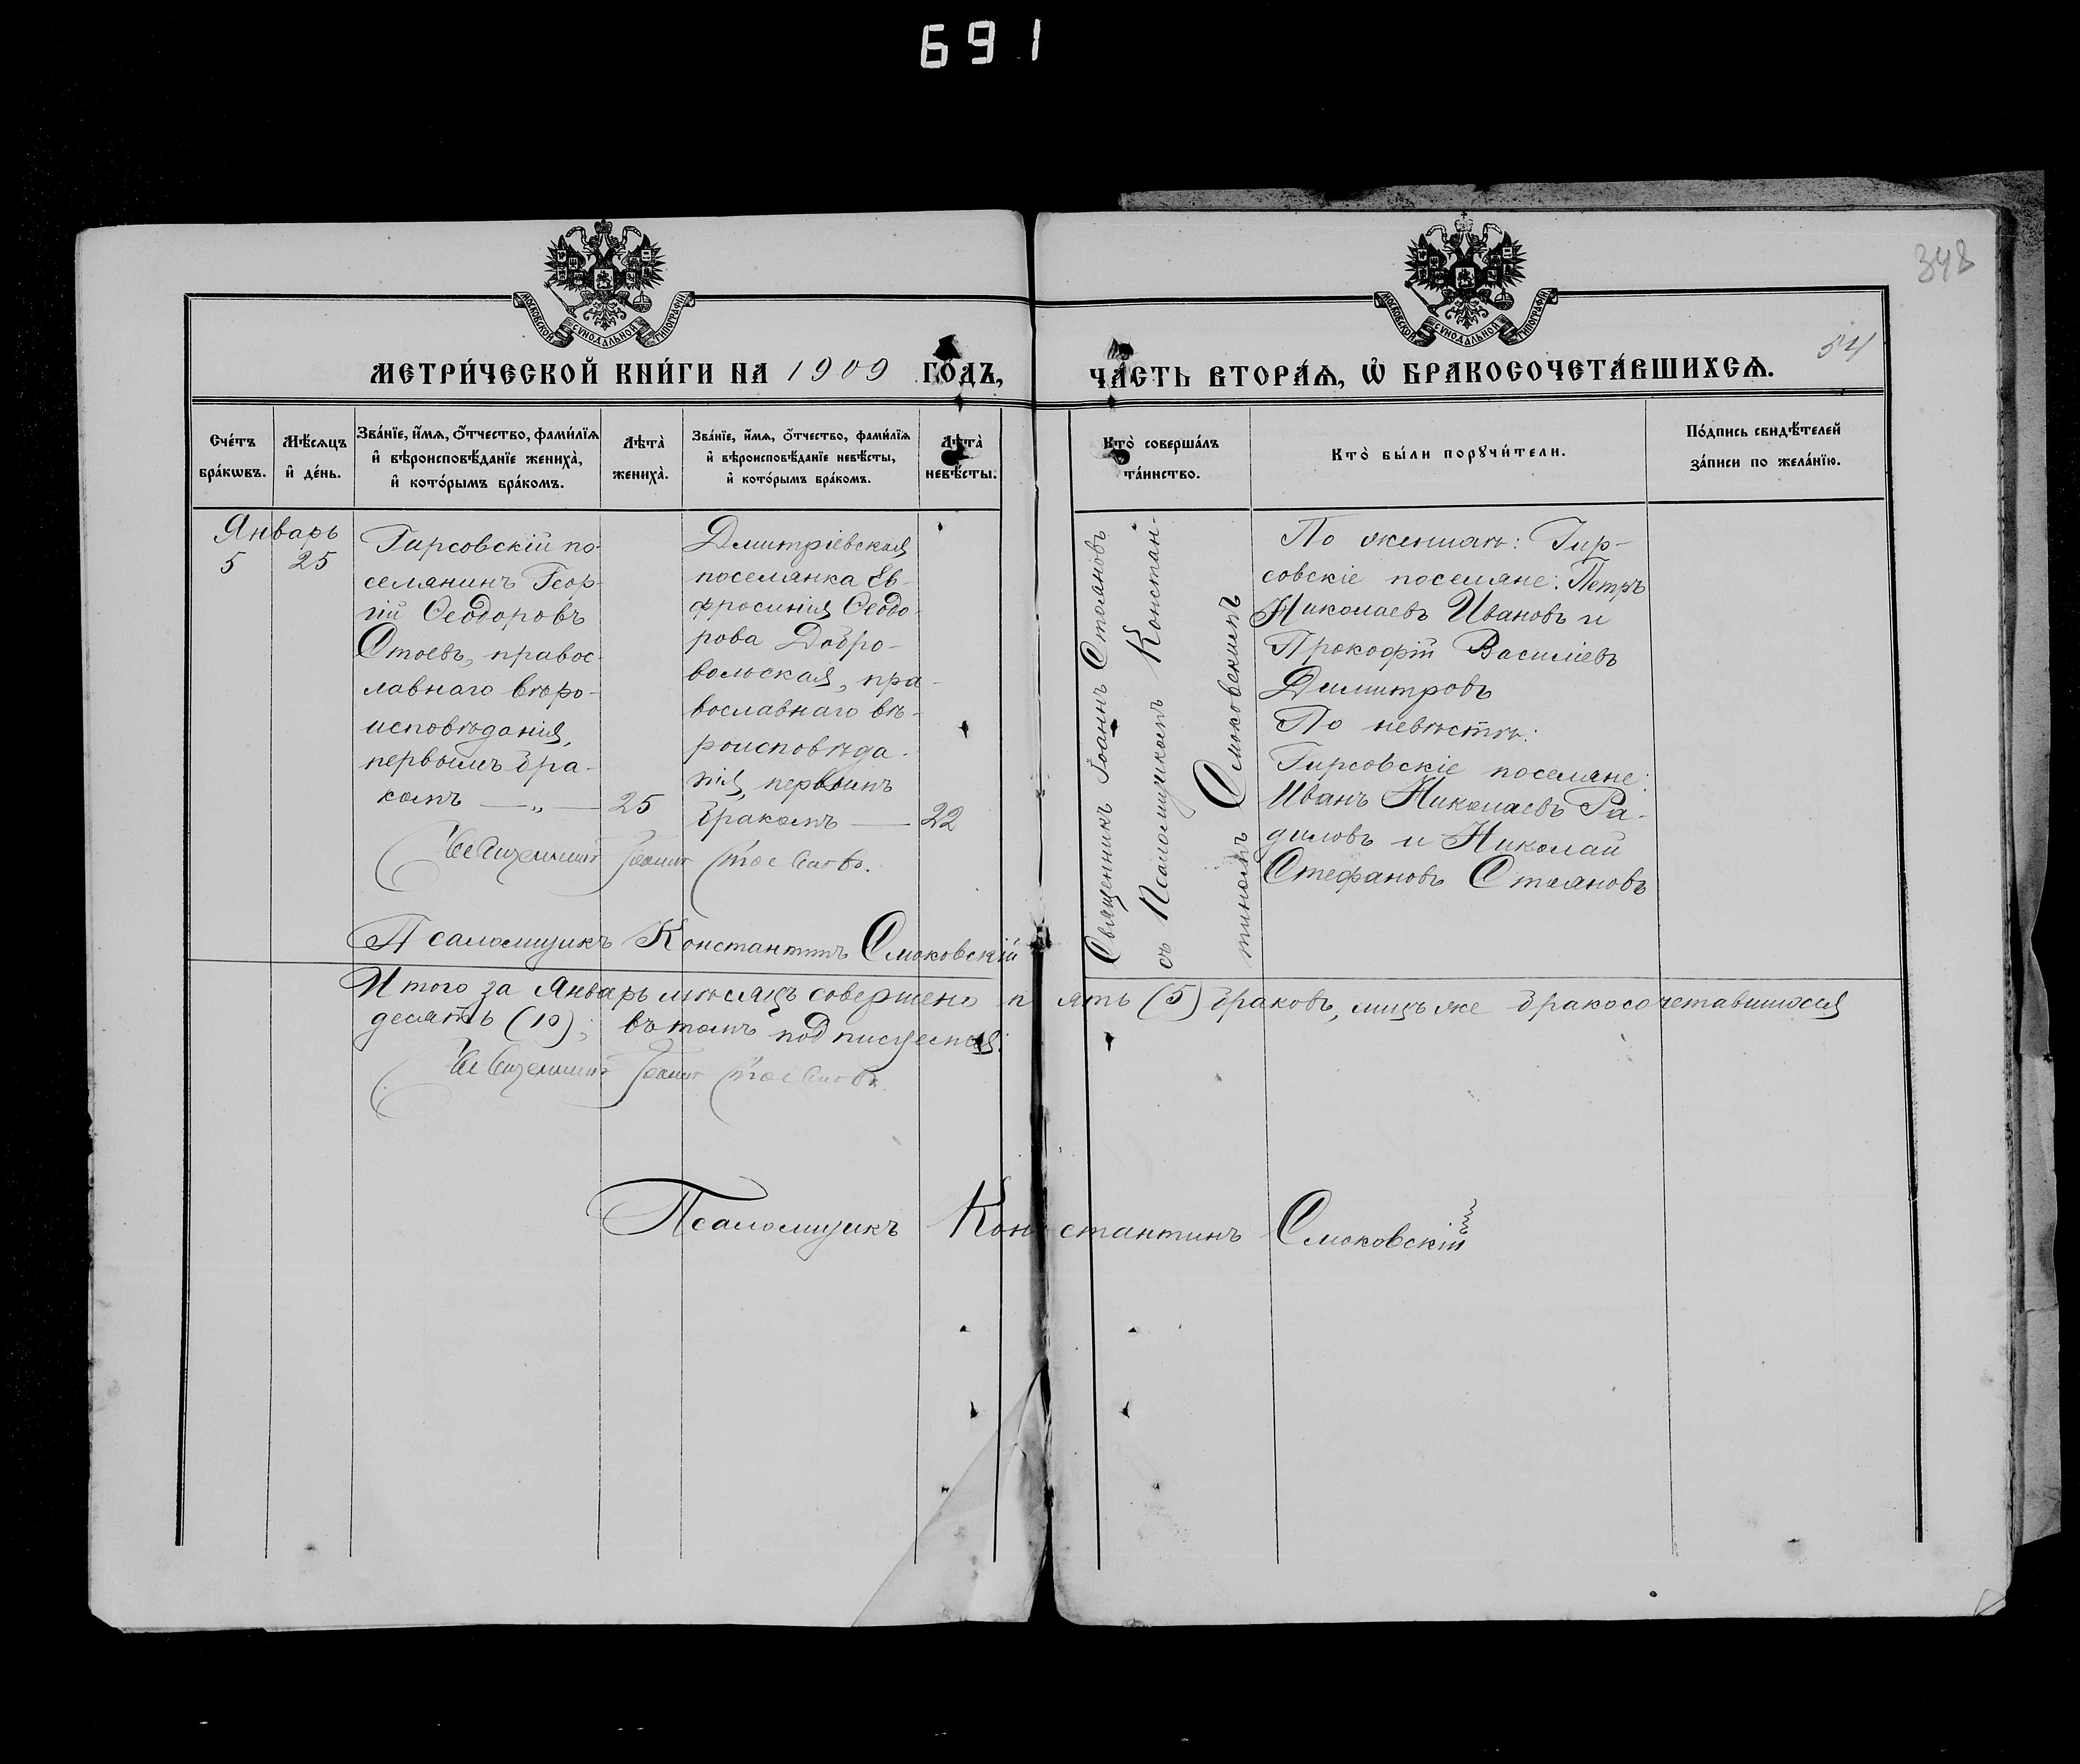 691
348
54
МОСКОВСКОЙ СѴНОДАЛЬНОЙ ТИПОГРАФІИ
МОСКОВСКОЙ СѴНОДАЛЬНОЙ ТИПОГРАФІИ
МЕТРИ́ЧЕСКОЙ КНИ́ГИ НА 1909 ГО́ДЪ,
ЧА́СТЬ ВТОРА́Ѧ, Ѽ БРАКОСОЧЕТА́ВШИХСѦ.
Сче́тъ
бра́кѡвъ.
Мѣ́сяцъ
и҆ де́нь.
Зва́нїе, и҆́мѧ, ѻ҆́тчество, фами́лїѧ
и҆ вѣроисповѣ́данїе жениха̀,
и҆ кото́рымъ бра́комъ.
Лѣта̀
жениха̀.
Зва́нїе, и҆́мѧ, ѻ҆́тчество, фами́лїѧ
и҆ вѣроисповѣ́данїе невѣ́сты,
и҆ кото́рымъ бра́комъ.
Лѣта̀
невѣ́сты.
Кто̀ соверша́лъ
та́инство.
Кто̀ бы́ли порꙋчи́тели.
По́дпись свидѣ́телей
за́писи по жела́нїю.
Январь
5 25
Гирсовскій по-
селянинъ Геор-
гій Ѳеодоровъ
Стоевъ, правос-
лавнаго вѣро-
исповѣданія,
первымъ бра-
комъ — „ — 25
Дмитріевская
поселянка Ев-
фросинія Ѳеодо-
рова Добро-
вольская, пра-
вославнаго вѣ-
роисповѣда-
нія, первымъ
бракомъ — 22
Священникъ Іоаннъ Стояновъ
съ Псаломщикомъ Констан-
тиномъ Смоковскимъ
По женихѣ: Гир-
совскіе поселяне: Петръ
Николаевъ Ивановъ и
Прокофій Василіевъ
Димитровъ
По невѣстѣ:
Гирсовскіе поселяне:
Иванъ Николаевъ Ра-
диловъ и Николай
Стефановъ Стояновъ
Священникъ Іоаннъ Стояновъ.
Псаломщикъ Константинъ Смоковскій
Итого за Январь мѣсяцъ совершено пять (5) браковъ, лицъ же бракосочетавшихся
десять (10); въ томъ подписуемся:
Священникъ Іоаннъ Стояновъ.
Псаломщикъ Константинъ Смоковскій